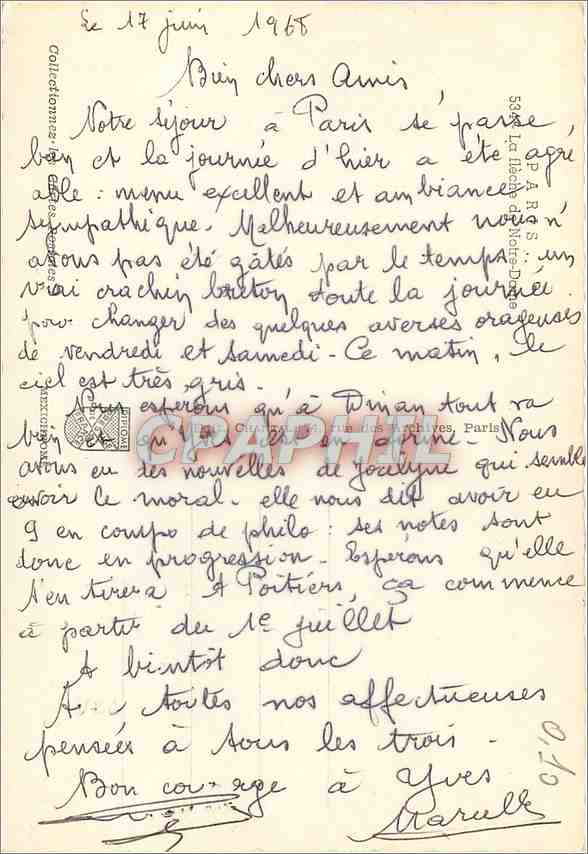 Le 17 juin 1968
Bien chers Amis,
Notre séjour à Paris se passe
bien et la journée d'hier a été agré
able : menu excellent et ambiance
sympathique. Malheureusement nous n'
avons pas été gâtés par le temps : un
vrai crachin breton toute la journée
pour changer des quelques averses orageuses
de vendredi et samedi - Ce matin, le
ciel est très gris.
Nous espérons qu'à Dinan tout va
bien et on est en - Nous
avons eu des nouvelles de Jocelyne qui semble
avoir le moral - elle nous dit avoir eu
9 en compo de philo : ses notes sont
donc en progression - Espérons qu'elle
s'en tirera - A Poitiers, ça commence
à partir du 1e juillet
A bientôt donc
Avec toutes nos affectueuses
pensées à tous les trois -
Bon courage à Yves
Marcelle
0,50
PARIS
5342 La flèche de Notre-Dame
Collectionnez les Cartes
MEXICHROME
DIPLOME
Edit. Chantal, 74, rue des Archives, Paris
CPAPHIL